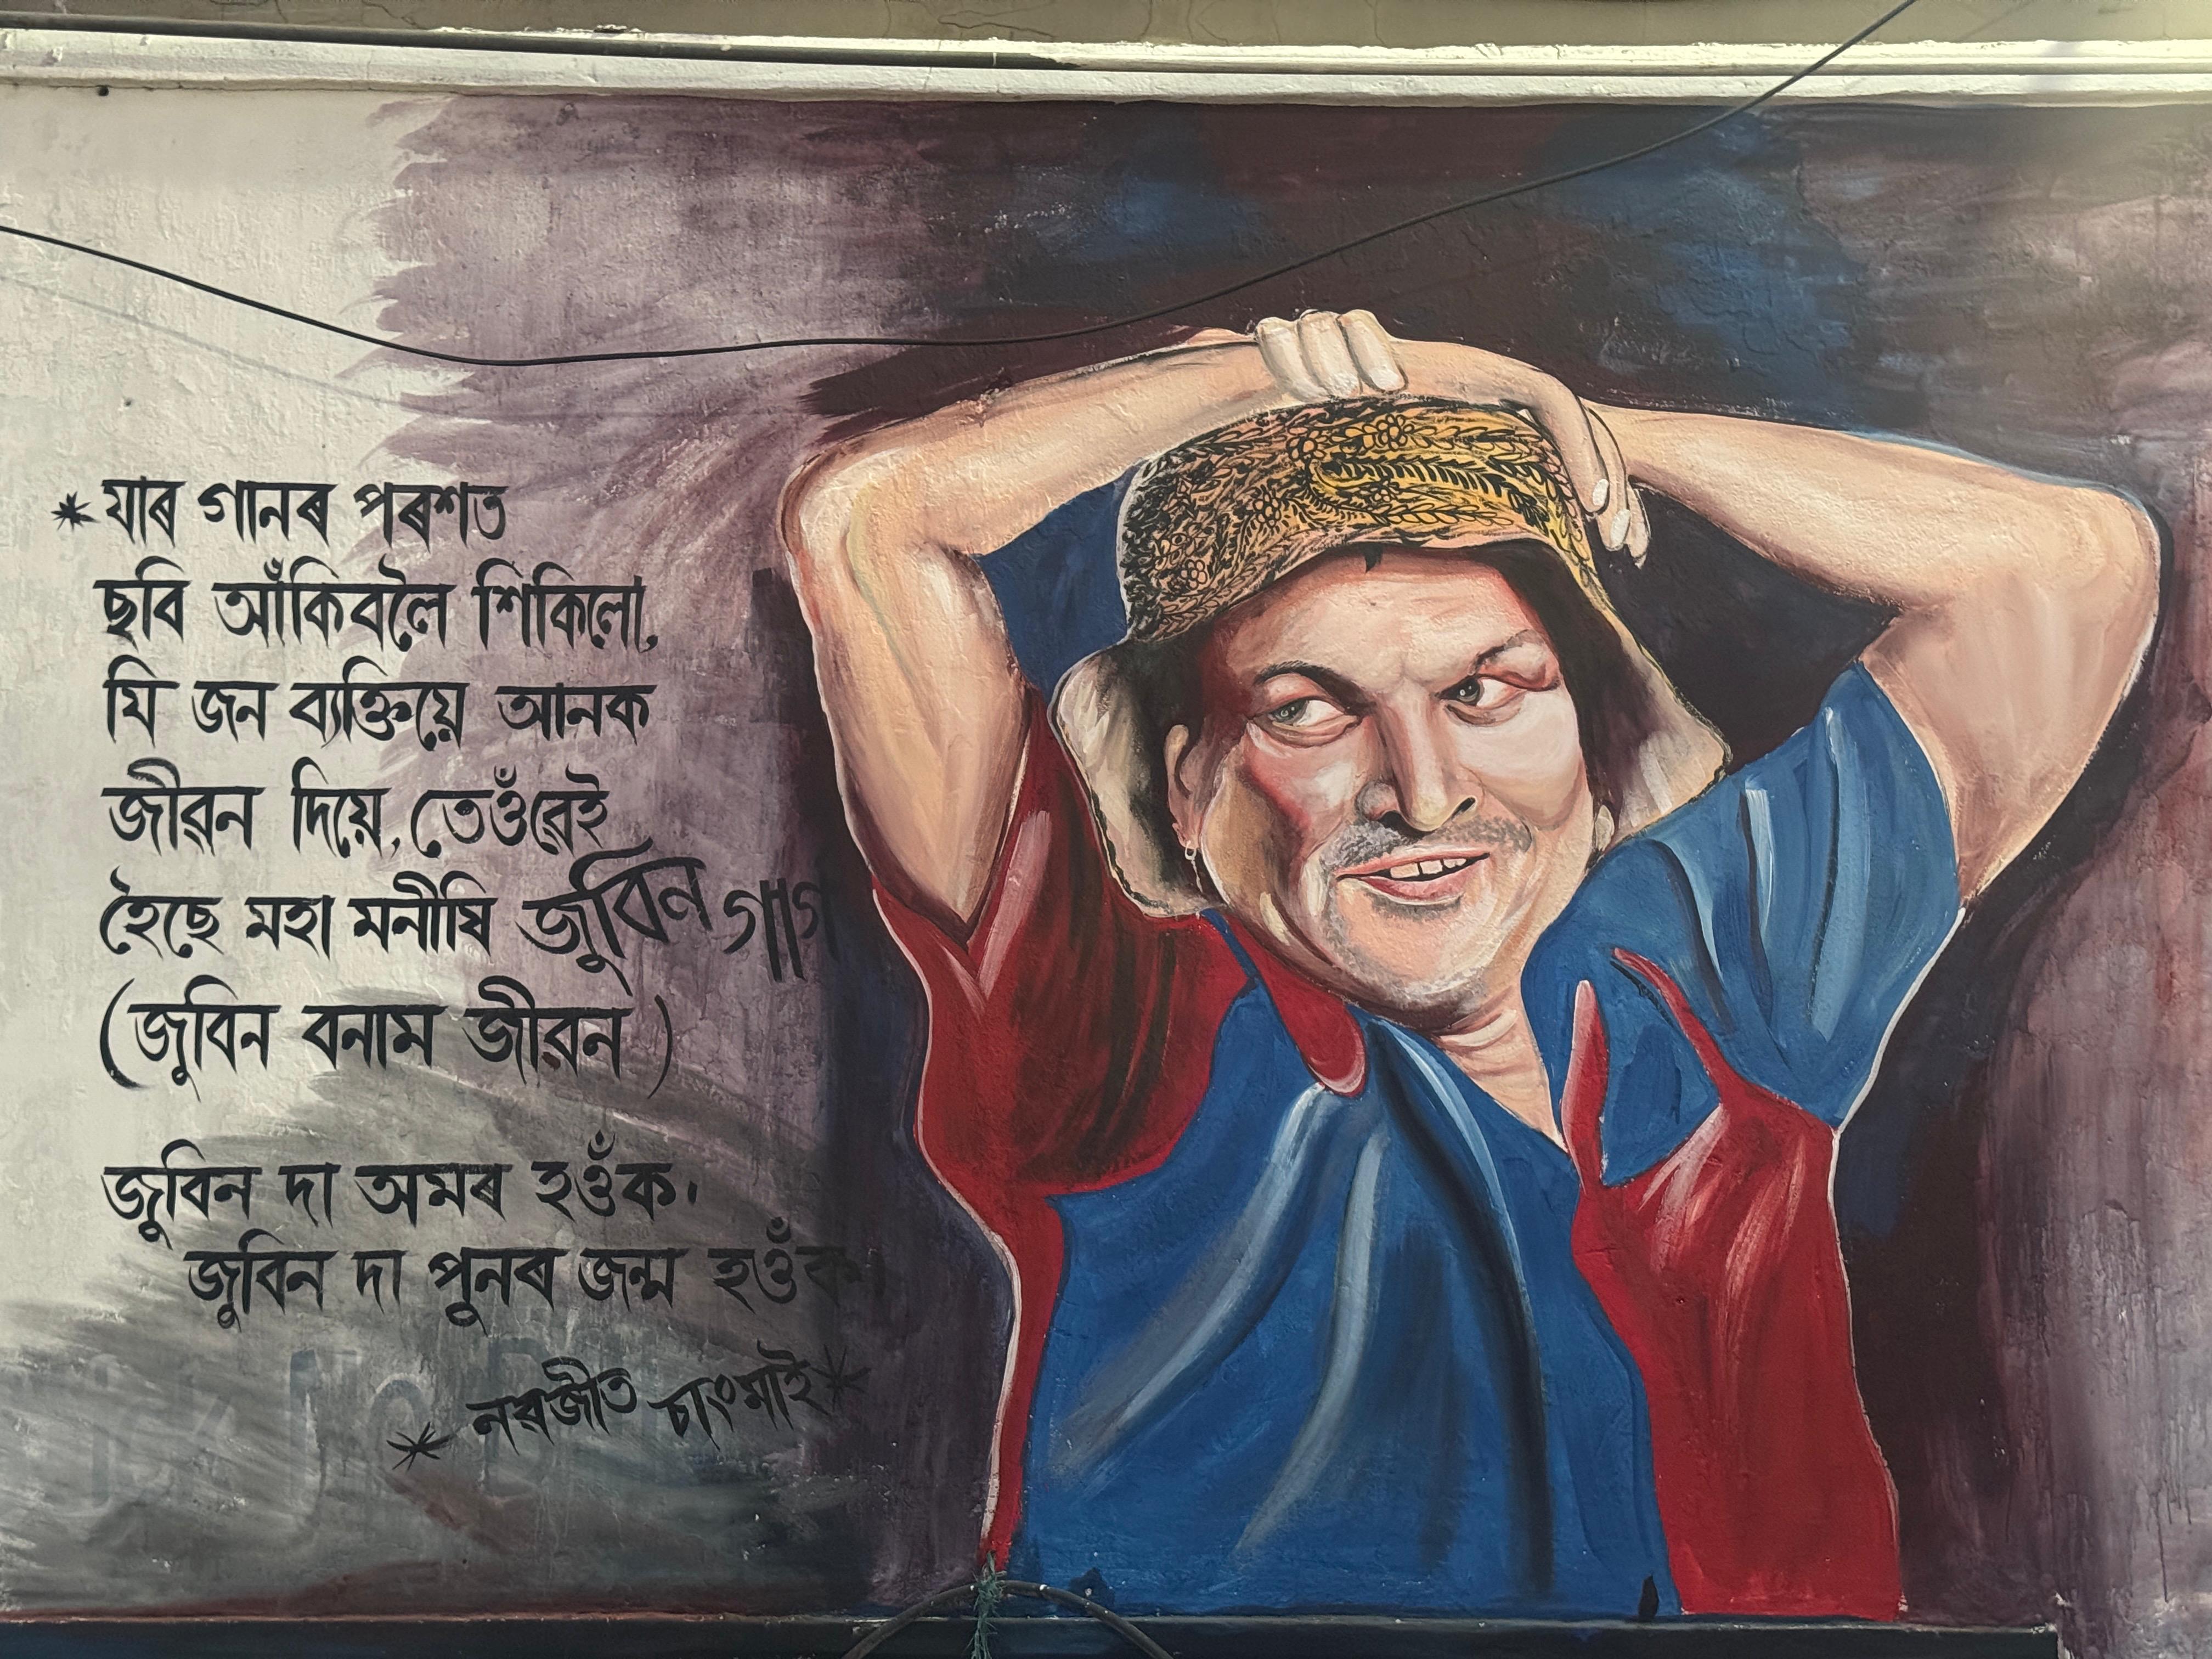 * যাৰ গানৰ পৰশত
ছবি আঁকিবলৈ শিকিলো,
যি জন ব্যক্তিয়ে আনক
জীৱন দিয়ে, তেওঁৱেই
হৈছে মহা মনীষি জুবিন গাৰ্গ
(জুবিন বনাম জীৱন)
জুবিন দা অমৰ হওঁক।
জুবিন দা পুনৰ জন্ম হওঁক।
* নৱজীত চাংমাই *